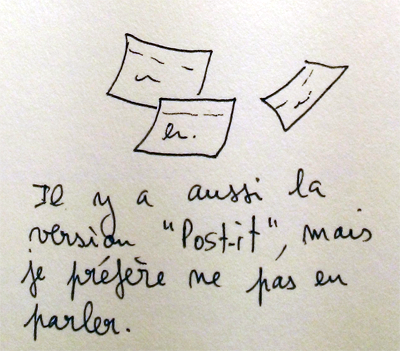 er.
Il y a aussi la
version "Post-it", mais
je préfère ne pas en
parler.